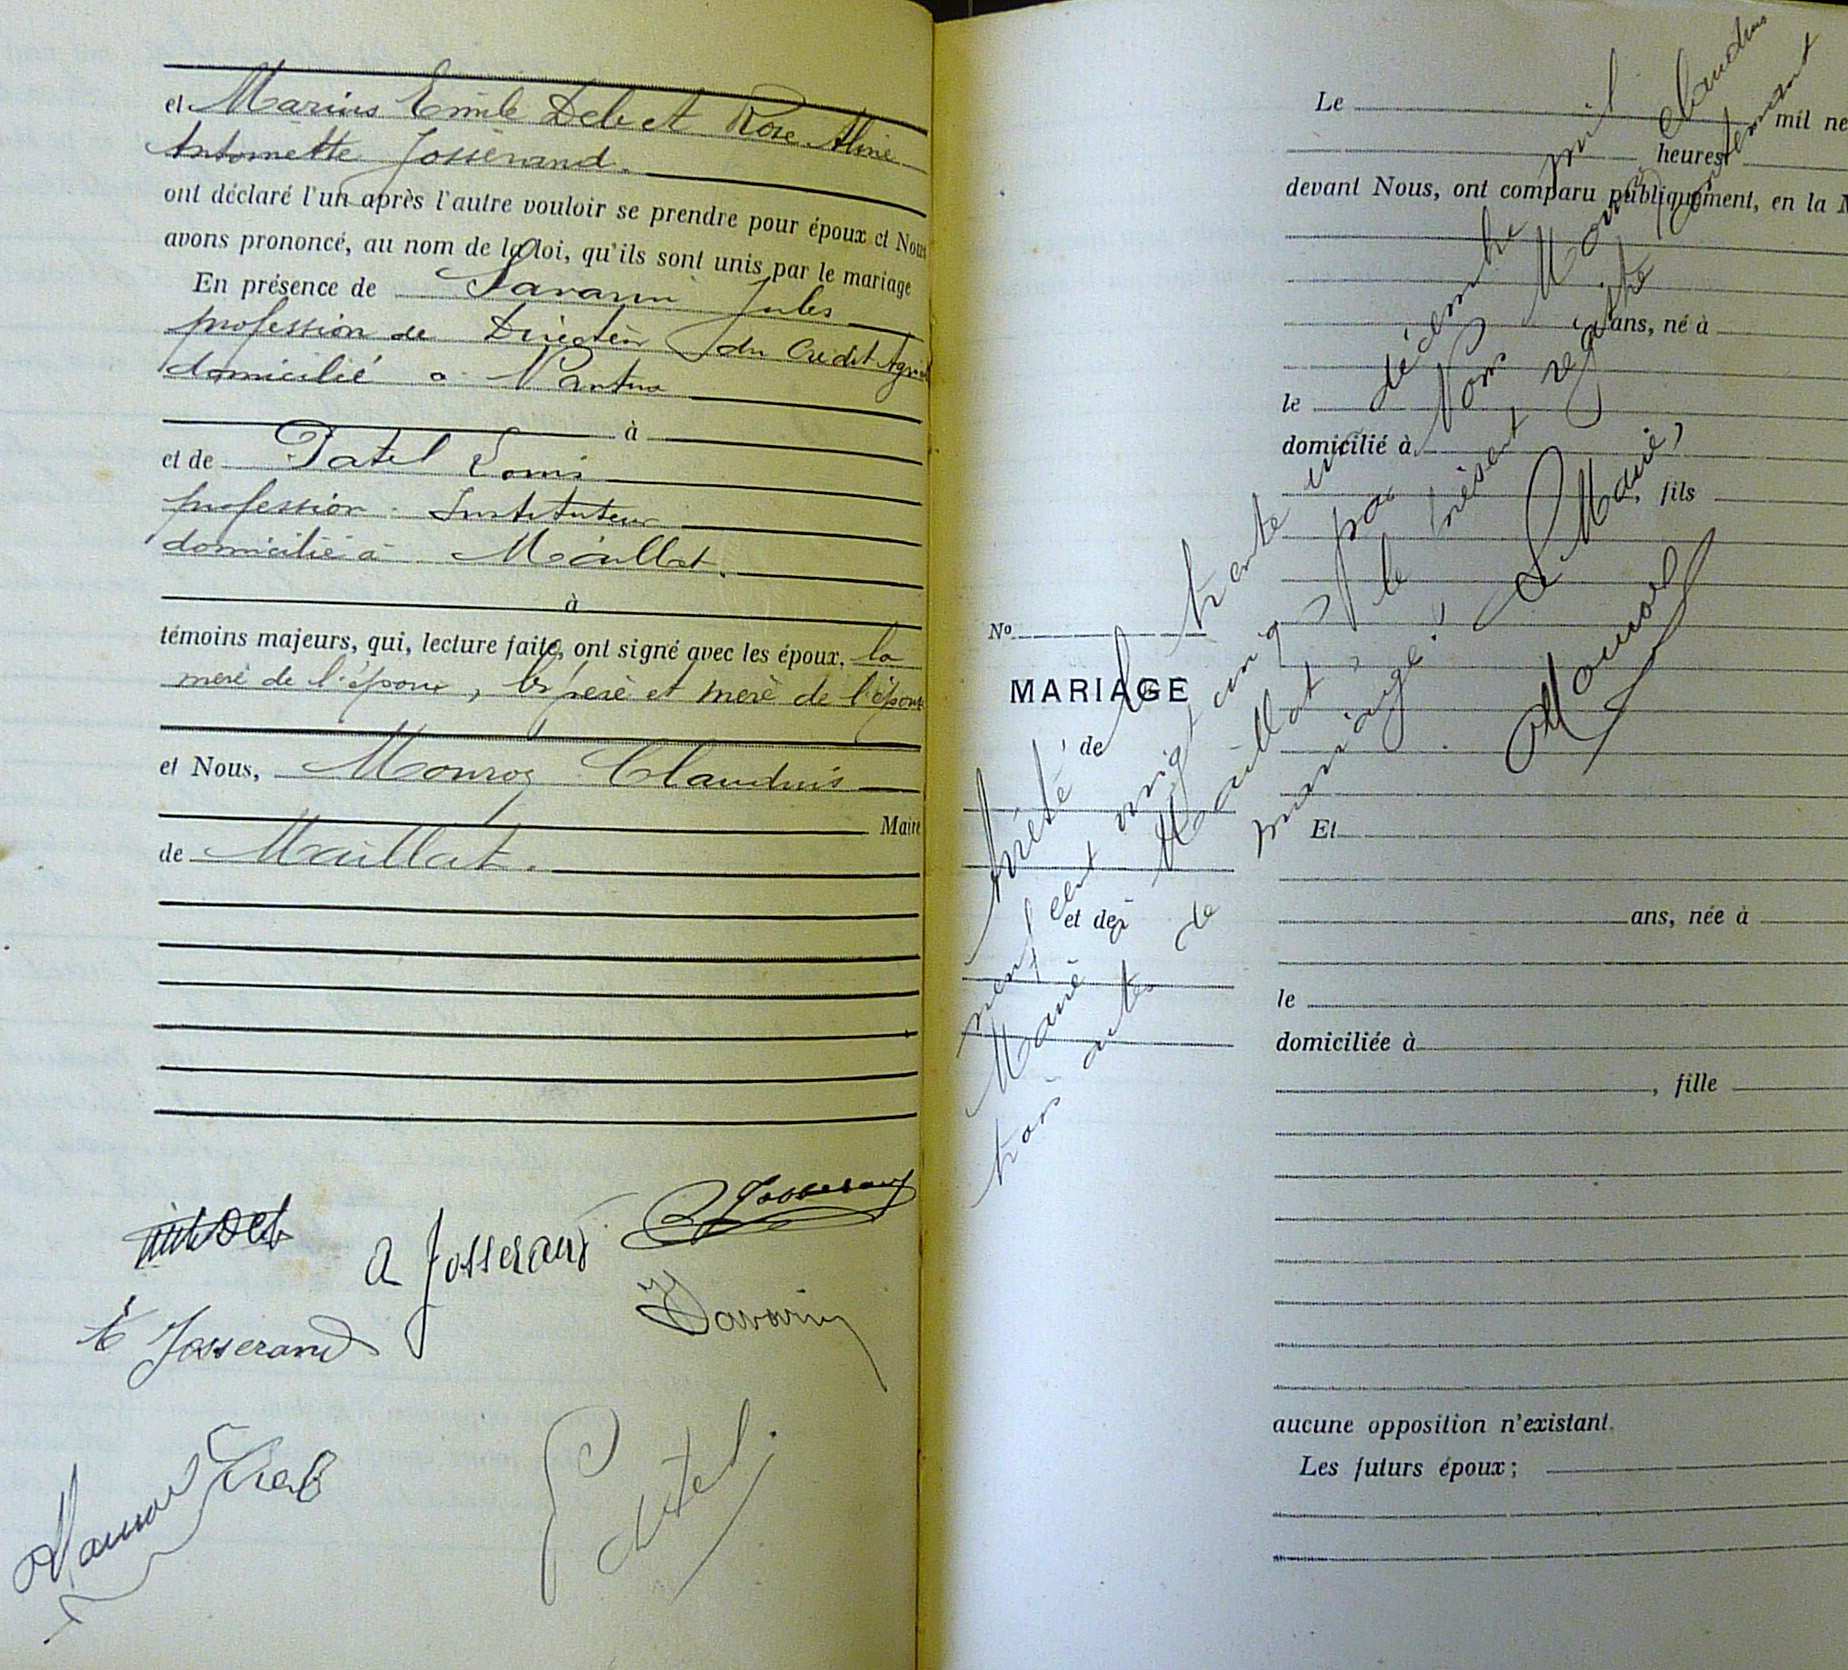 et Marius Emile Deb et Rose Aline
Antoinette Josserand.
ont déclaré l'un après l'autre vouloir se prendre pour époux et Nous
avons prononcé, au nom de la loi, qu'ils sont unis par le mariage
En présence de Savarin Jules
profession de Directeur du Crédit Agricole
domicilié à Nantua
à
et de Patel Louis
profession Instituteur
domicilié à Maillat.
à
témoins majeurs, qui, lecture faite, ont signé avec les époux, la
mère de l'époux, les père et mère de l'épouse
et Nous, Monroz Claudius
Maire
de Maillat.
A Josserand
Josserand
Savarin
E Josserand
Patel
Le mil ne
heures
devant Nous, ont comparu publiquement, en la M
ans, né à
le
domicilié à
, fils
No
MARIAGE
de
et de
Et
ans, née à
le
domiciliée à
, fille
aucune opposition n'existant.
Les futurs époux ;
Arrêté le trente un décembre mil
neuf cent vingt cinq, par Nous Monroz Claudius
Maire de Maillat, le présent registre contenant
trois actes de mariage.
Le Maire,